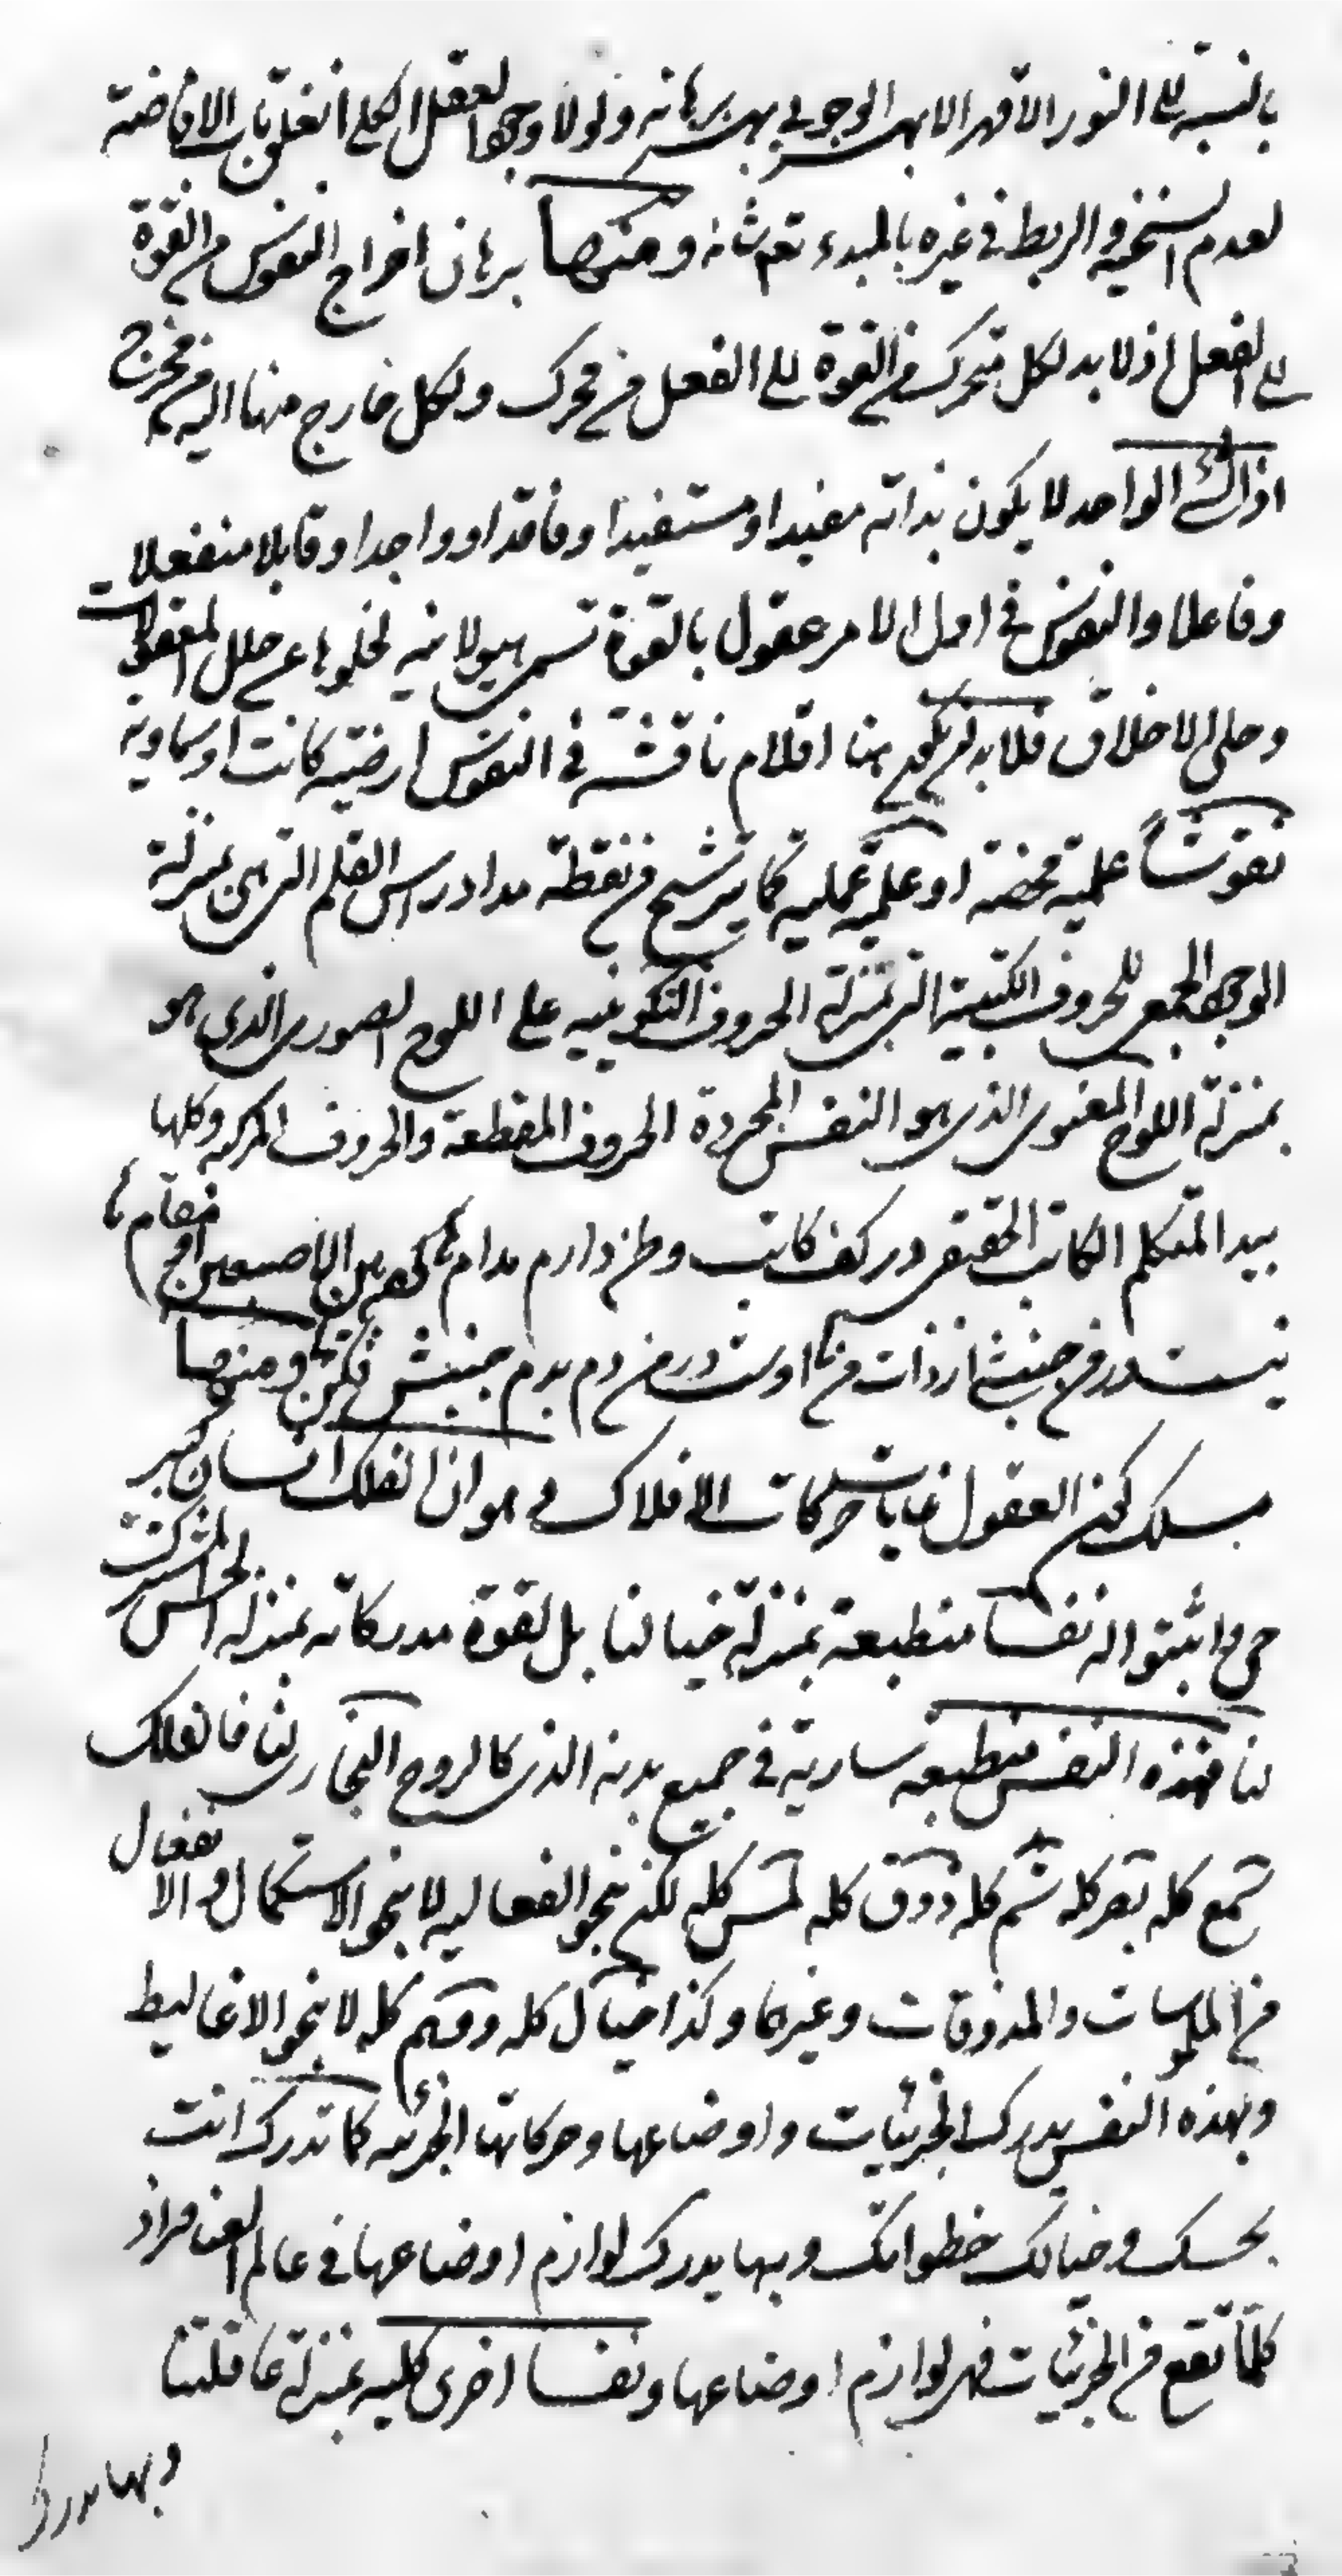 بالنسبة الى النور الاقهر الابهر الوجوبى بهر برهانه ولولا وجود العقل الكلى انغلق باب الافاضة
لعدم السنخية والربط فى غيره بالمبدء تعالى شانه ومنها برهان اخراج النفوس من القوة
الى الفعل اذ لا بد لكل متحرك من القوة الى الفعل من محرك ولكل خارج منها اليه من مخرج
اذ الشئ الواحد لا يكون بذاته مفيدا ومستفيدا وفاقدا وواجدا وقابلا منفعلا
وفاعلا والنفوس فى اول الامر عقول بالقوة تسمى هيولانية لخلوها عن حلل المعقولات
وحلى الاخلاق فلا بد ان يكون هنا اقلام ناقشة فى النفوس ارضية كانت او سماوية
نقوشاً علمية محضة او علمية عملية كما يترشح من نقطة مداد راس القلم التى هى بمنزلة
الوجود الجمعى للحروف الكتبية التى بمنزلة الحروف التكوينية على اللوح الصورى الذى هو
بمنزلة اللوح المعنوى الذى هو النفس المجردة الحروف المقطعة والحروف المركبة وكلها
بيد المتكلم الكاتب الحقيقى در كف كاتب وطن دارم مدام كرده بين الاصبعين او مقام
نيست در من جنبشى از ذات من اوست در من دم بدم جنبش فكن ومنها
مسلك كون العقول غايات حركات الافلاك وهو ان الفلك انسان كبير
حى واثبتوا له نفسا منطبعة بمنزلة خيالنا بل لقوة مدركاته بمنزلة الحس المشترك
لنا فهذه النفس منطبعة سارية فى جميع بدنه الذى كالروح البخارى لنا فالفلك
سمع كله بصر كله شم كله ذوق كله لمس كله لكن بنحو الفعالية لا بنحو الاستكمال والانفعال
من الملموسات والمذوقات وغيرها وكذا خيال كله ووهم كله لا بنحو الاغاليط
وبهذه النفس يدرك الجزئيات واوضاعها وحركاتها الجزئية كما تدرك انت
بحسك وخيالك خطواتك وبها يدرك لوازم اوضاعها فى عالم العناصر اذ
كلما تقع من الجزئيات فهى لوازم اوضاعها ونفسا اخرى كلية بمنزلة عاقلتنا
وبها يدرك